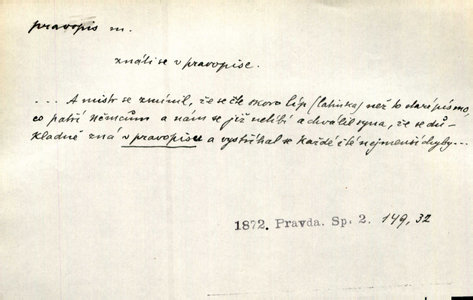 pravopis m.
znáti se v pravopise.
... A mistr se zmínil, že se čte skoro líp (latinka) než to starý písmo,
co patří němcům a nám se již nelíbí a chválil syna, že se dů-
kladně zná v pravopise a vystříhal se každé té nejmenší chyby...
1872. Pravda. Sp. 2. 149, 32